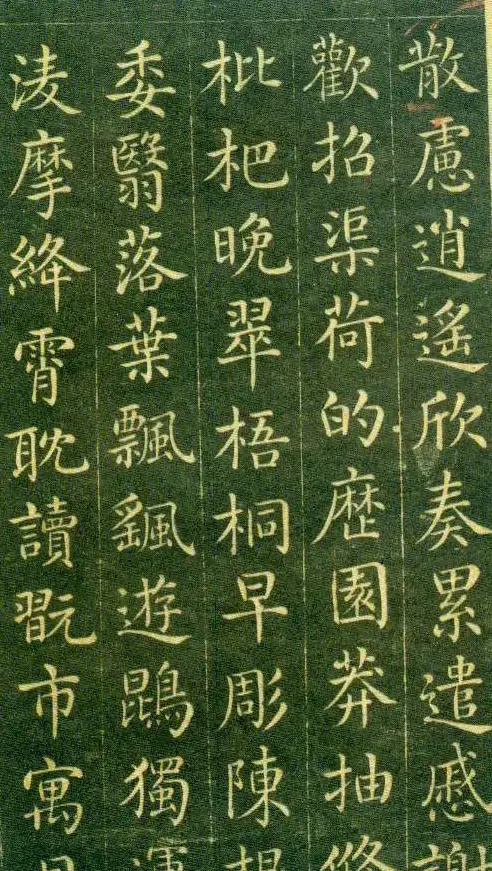 散慮逍遙欣奏累遣慼謝
歡招渠荷的歷園莽抽條
枇杷晚翠梧桐早彫陳根
委翳落葉飄颻遊鵾獨運
淩摩絳霄耽讀翫市寓目